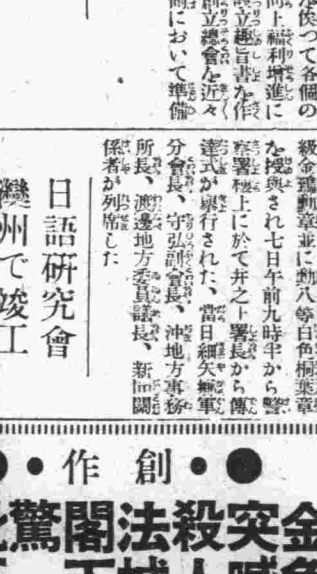 を俟つて各個の
向上福利增進に
設立趣旨書を作
創立總會を近々
側において準備
級金鵄勳章並に勳八等白色桐葉章
を授與され七日午前九時半から警
察署樓上に於て井之上署長から傳
達式が擧行された、當日細矢鄕軍
分會長、守弘副會長、沖地方事務
所長、渡邊地方委員議長、新聞關
係者が列席した
日語硏究會
灤州で竣工
創作
金突殺法閣驚